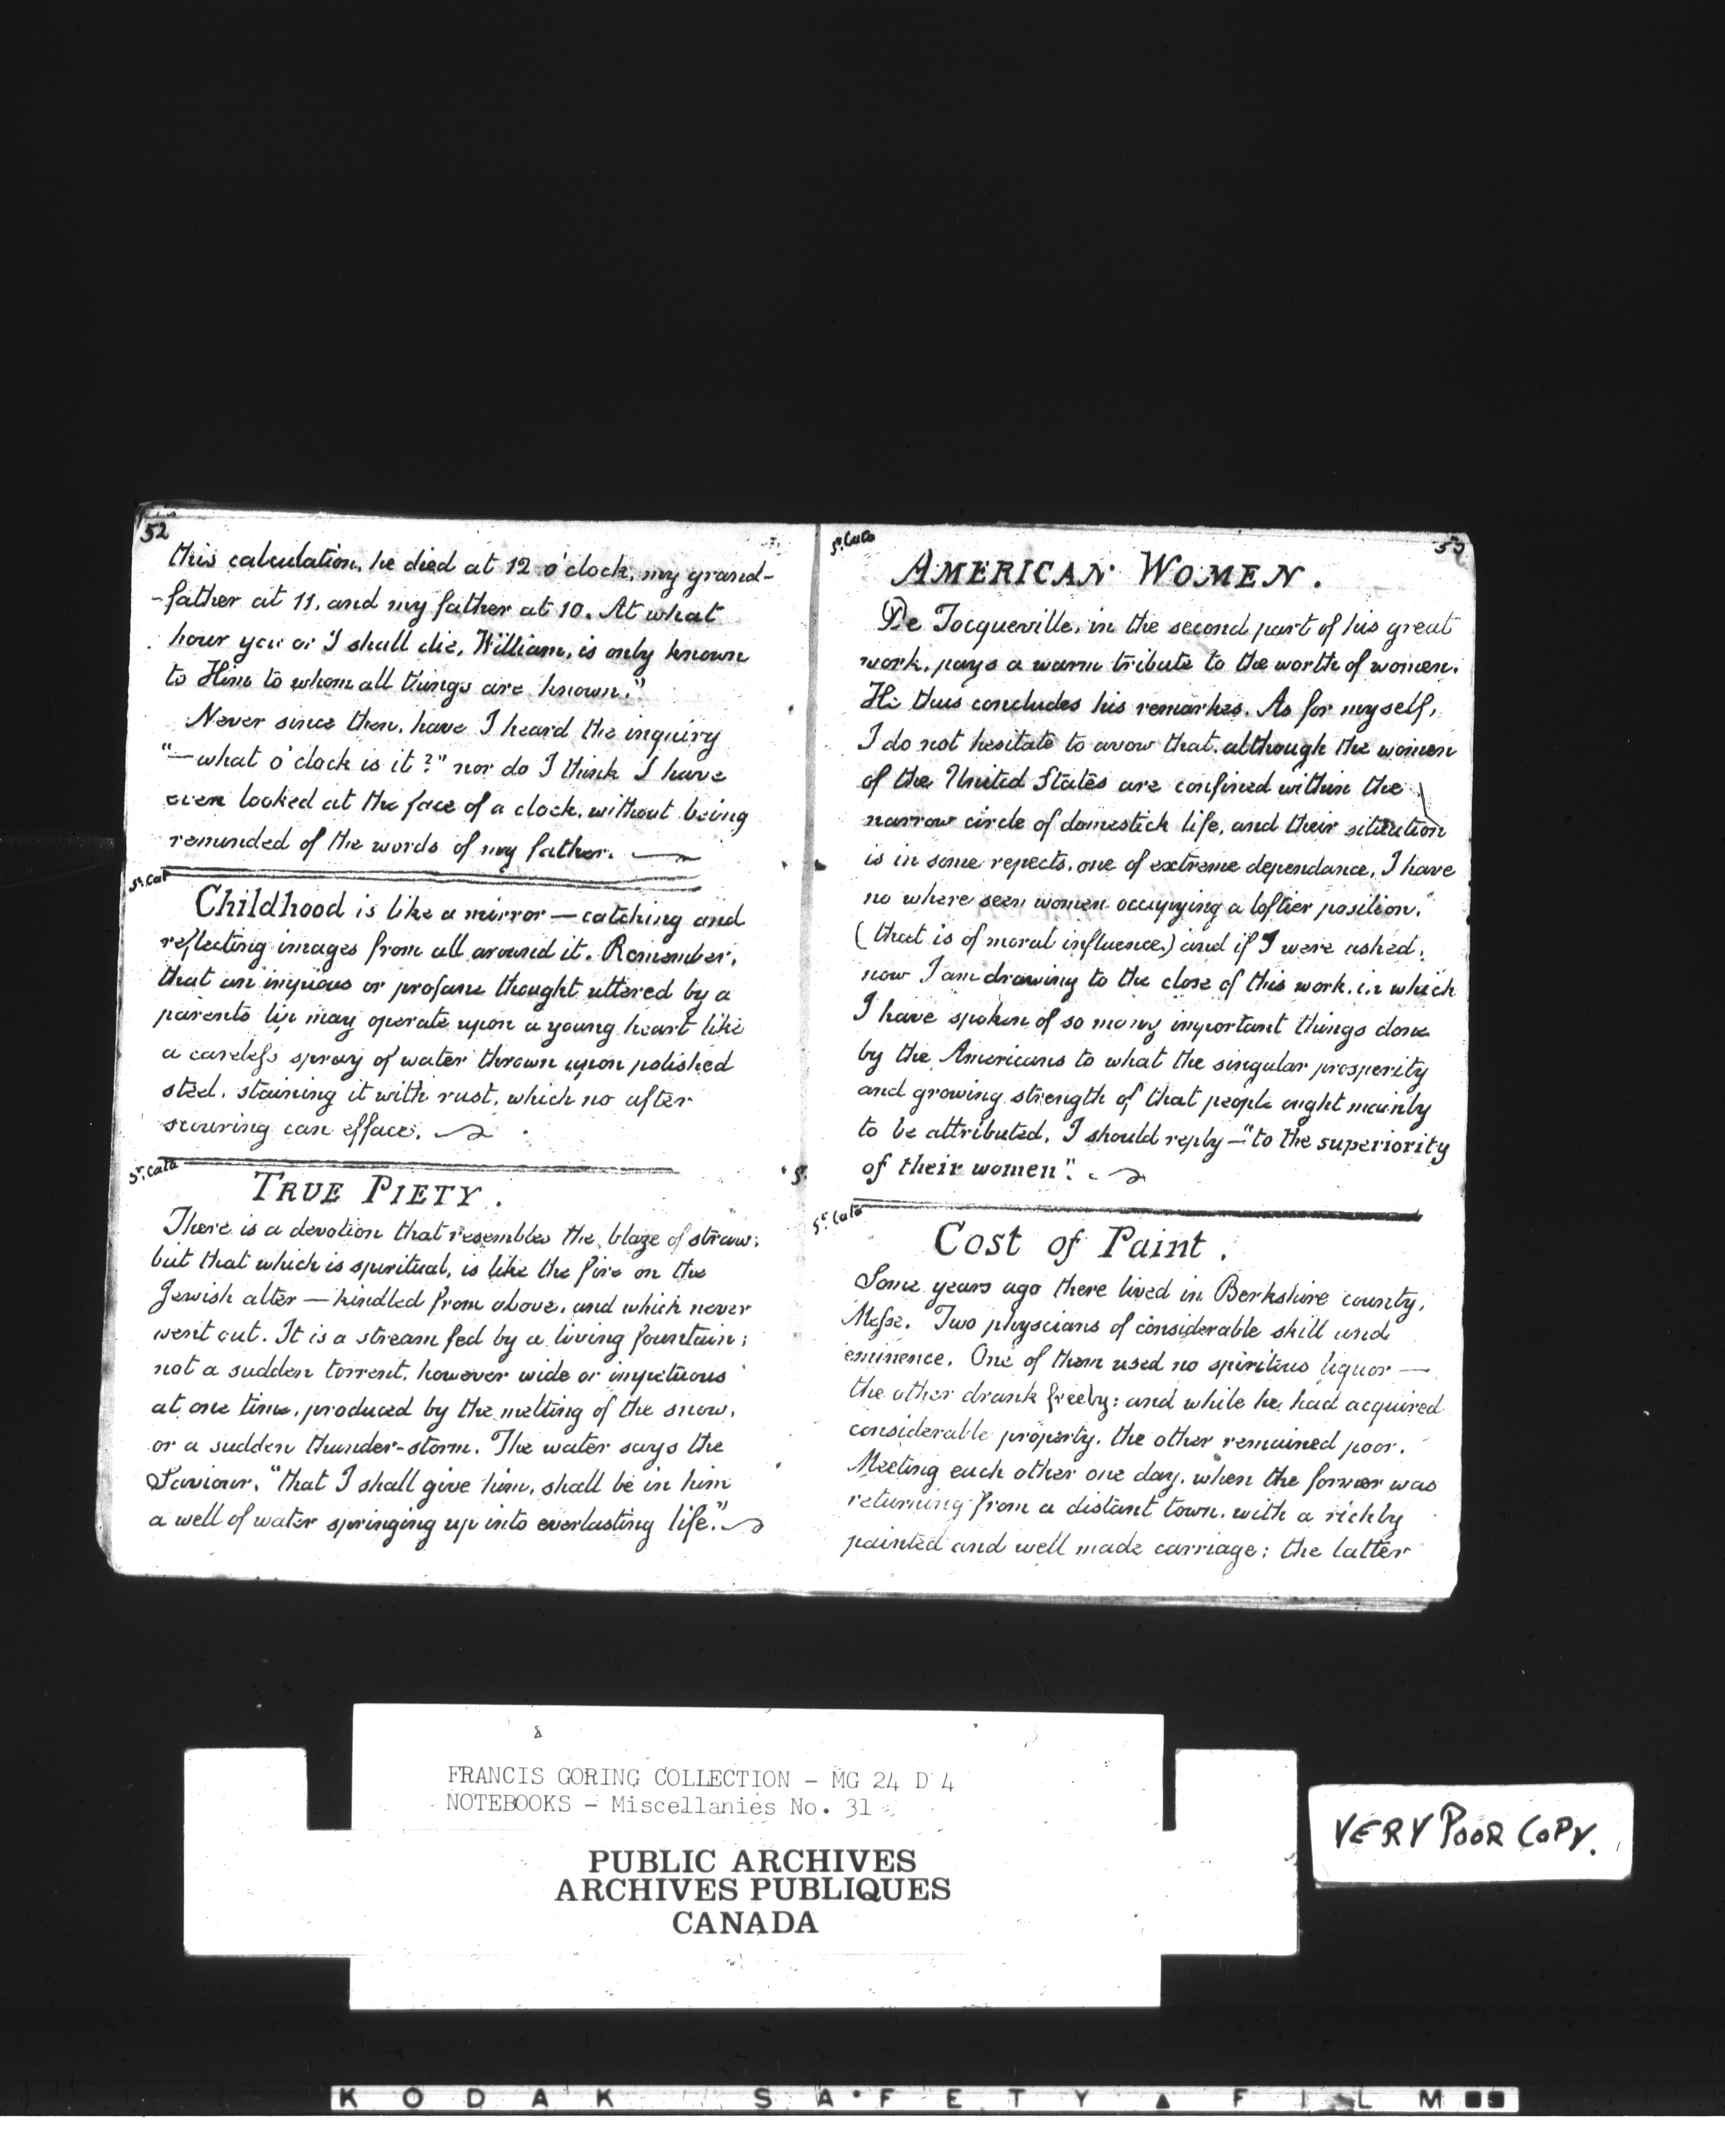 52
this calculation, he died at 12 o'clock, my grand-
-father at 11, and my father at 10. At what
hour you or I shall die, William, is only known
to Him to whom all things are known."
Never since then, have I heard the inquiry
"—what o'clock is it?" nor do I think I have
even looked at the face of a clock, without being
reminded of the words of my father.
St. Cat
Childhood is like a mirror — catching and
reflecting images from all around it. Remember,
that an impious or profane thought uttered by a
parents lip may operate upon a young heart like
a careless spray of water thrown upon polished
steel, staining it with rust, which no after
scouring can efface.
St. Cata
TRUE PIETY.
There is a devotion that resembles the blaze of straw;
but that which is spiritual, is like the fire on the
Jewish alter — kindled from above, and which never
went out. It is a stream fed by a living fountain;
not a sudden torrent, however wide or impetuous
at one time, produced by the melting of the snow,
or a sudden thunder-storm. The water says the
Saviour, "that I shall give him, shall be in him
a well of water springing up into everlasting life."
St. Cata
53
AMERICAN WOMEN.
De Tocqueville, in the second part of his great
work, pays a warm tribute to the worth of women.
He thus concludes his remarkes. As for myself,
I do not hesitate to avow that, although the women
of the United States are confined within the
narrow circle of domestick life, and their situation
is in some repects, one of extreme dependance, I have
no where seen women occupying a loftier position,"
(that is of moral influence) and if I were asked,
now I am drawing to the close of this work, in which
I have spoken of so many important things done
by the Americans to what the singular prosperity
and growing strength of that people ought mainly
to be attributed, I should reply —"to the superiority
of their women".
St. Cata
Cost of Paint.
Some years ago there lived in Berkshire county,
Mass. Two physcians of considerable skill and
eminence. One of them used no spiritous liquor —
the other drank freely: and while he had acquired
considerable property, the other remained poor.
Meeting each other one day, when the former was
returning from a distant town, with a richly
painted and well made carriage; the latter
FRANCIS GORING COLLECTION - MG 24 D 4
NOTEBOOKS - Miscellanies No. 31
PUBLIC ARCHIVES
ARCHIVES PUBLIQUES
CANADA
VERY POOR COPY.
KODAK SAFETY FILM